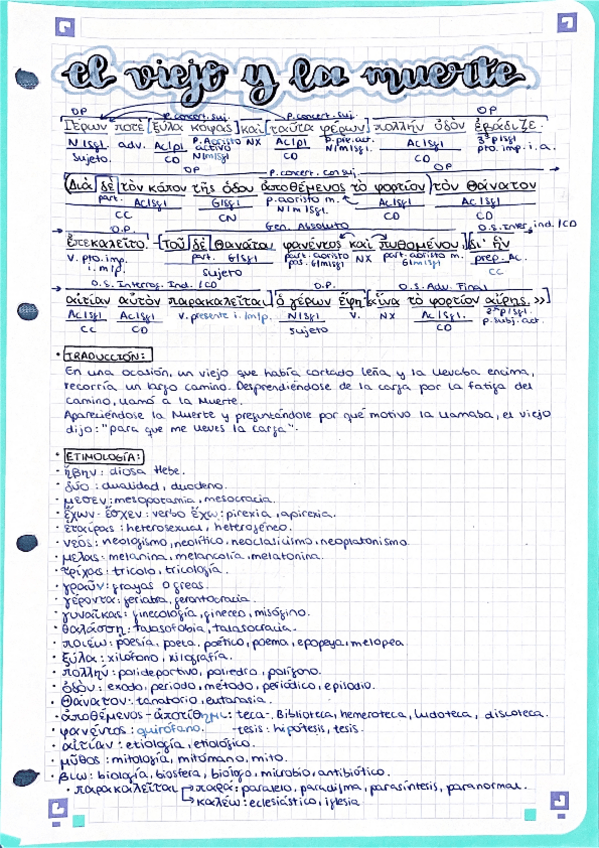 el viejo y la muerte
O.P. P. concert. suj. P. concert. suj. O.P.
Γέρων ποτὲ [ξύλα κόψας] καὶ [ταῦτα φέρων] πολλὴν ὁδὸν ἐβάδιζε.
N|sg|. adv. Ac|pl P. Aoristo NX Ac|pl P. pte. act. Ac|sg|. 3ª p|sg|.
sujeto. CD activo CD N|m|sg|. CD pto. imp. i. a.
N|m|sg|
O.P. P. concert. con suj. O.P.
(Διὰ δὲ τὸν κόπον τῆς ὁδοῦ ἀποθέμενος τὸ φορτίον) τὸν θάνατον
part. Ac|sg|. G|sg|. P. aoristo m. Ac|sg|. Ac|sg|.
CC CN N|m|sg|. CD CD
O.P. Gen. Absoluto O.S. Inter. ind. /CD
ἐπεκαλεῖτο. (Τοῦ δὲ θανάτου φανέντος καὶ πυθομένου) (δι' ἣν
V. pto. imp. part. G|sg|. part. aoristo NX part. aoristo m. prep. Ac.
i. m/p. sujeto pas. G|m|sg| G|m|sg| CC
O.S. Interrog. Ind. /CD O.P. O.S. Adv. Final
αἰτίαν αὐτὸν παρακαλεῖται) ὁ γέρων ἔφη: «ἵνα τὸ φορτίον αἴρῃς.»)
Ac|sg|. Ac|sg|. V. presente i. m/p. N|sg|. V. NX Ac|sg|. 2ª p|sg|.
CC CD sujeto CD p. subj. act.
· TRADUCCIÓN:
En una ocasión, un viejo que había cortado leña, y la llevaba encima,
recorría un largo camino. Desprendiéndose de la carga por la fatiga del
camino, llamó a la Muerte.
Apareciéndose la Muerte y preguntándole por qué motivo la llamaba, el viejo
dijo: "para que me lleves la carga".
· ETIMOLOGÍA:
· ἥβην: diosa Hebe.
· δύο: dualidad, duodeno.
· μεσεν: mesopotamia, mesocracia.
· ἔχων - ἔσχεν: verbo ἔχω: pirexia, apirexia.
· ἑταίρας: heterosexual, heterogéneo.
· νεός: neologismo, neolítico, neoclasicismo, neoplatonismo.
· μελας: melanina, melancolía, melatonina.
· τρίχας: tricolo, tricología.
· γραῦν: grayas o greas.
· γέροντα: geriatra, gerontocracia.
· γυναῖκας: ginecología, gineceo, misógino.
· θαλάσση: talasofobia, talasocracia.
· ποιέω: poesía, poeta, poético, poema, epopeya, melopea.
· ξύλα: xilófono, xilografía.
· πολλήν: polideportivo, poliedro, polígono.
· ὁδὸν: exodo, periodo, método, periódico, episodio.
· θάνατον: tanatorio, eutanasia.
· ἀποθέμενος - ἀποτίθημι: teca-. Biblioteca, hemeroteca, ludoteca, discoteca.
· φανέντος: quirófano. -tesis: hipótesis, tesis.
· αἰτίαν: etiología, etiológico.
· μῦθος: mitología, mitómano, mito.
· βιω: biología, biosfera, biólogo, microbio, antibiótico.
· παρακαλεῖται παρα: paralelo, paradigma, parasíntesis, paranormal.
καλέω: eclesiástico, iglesia